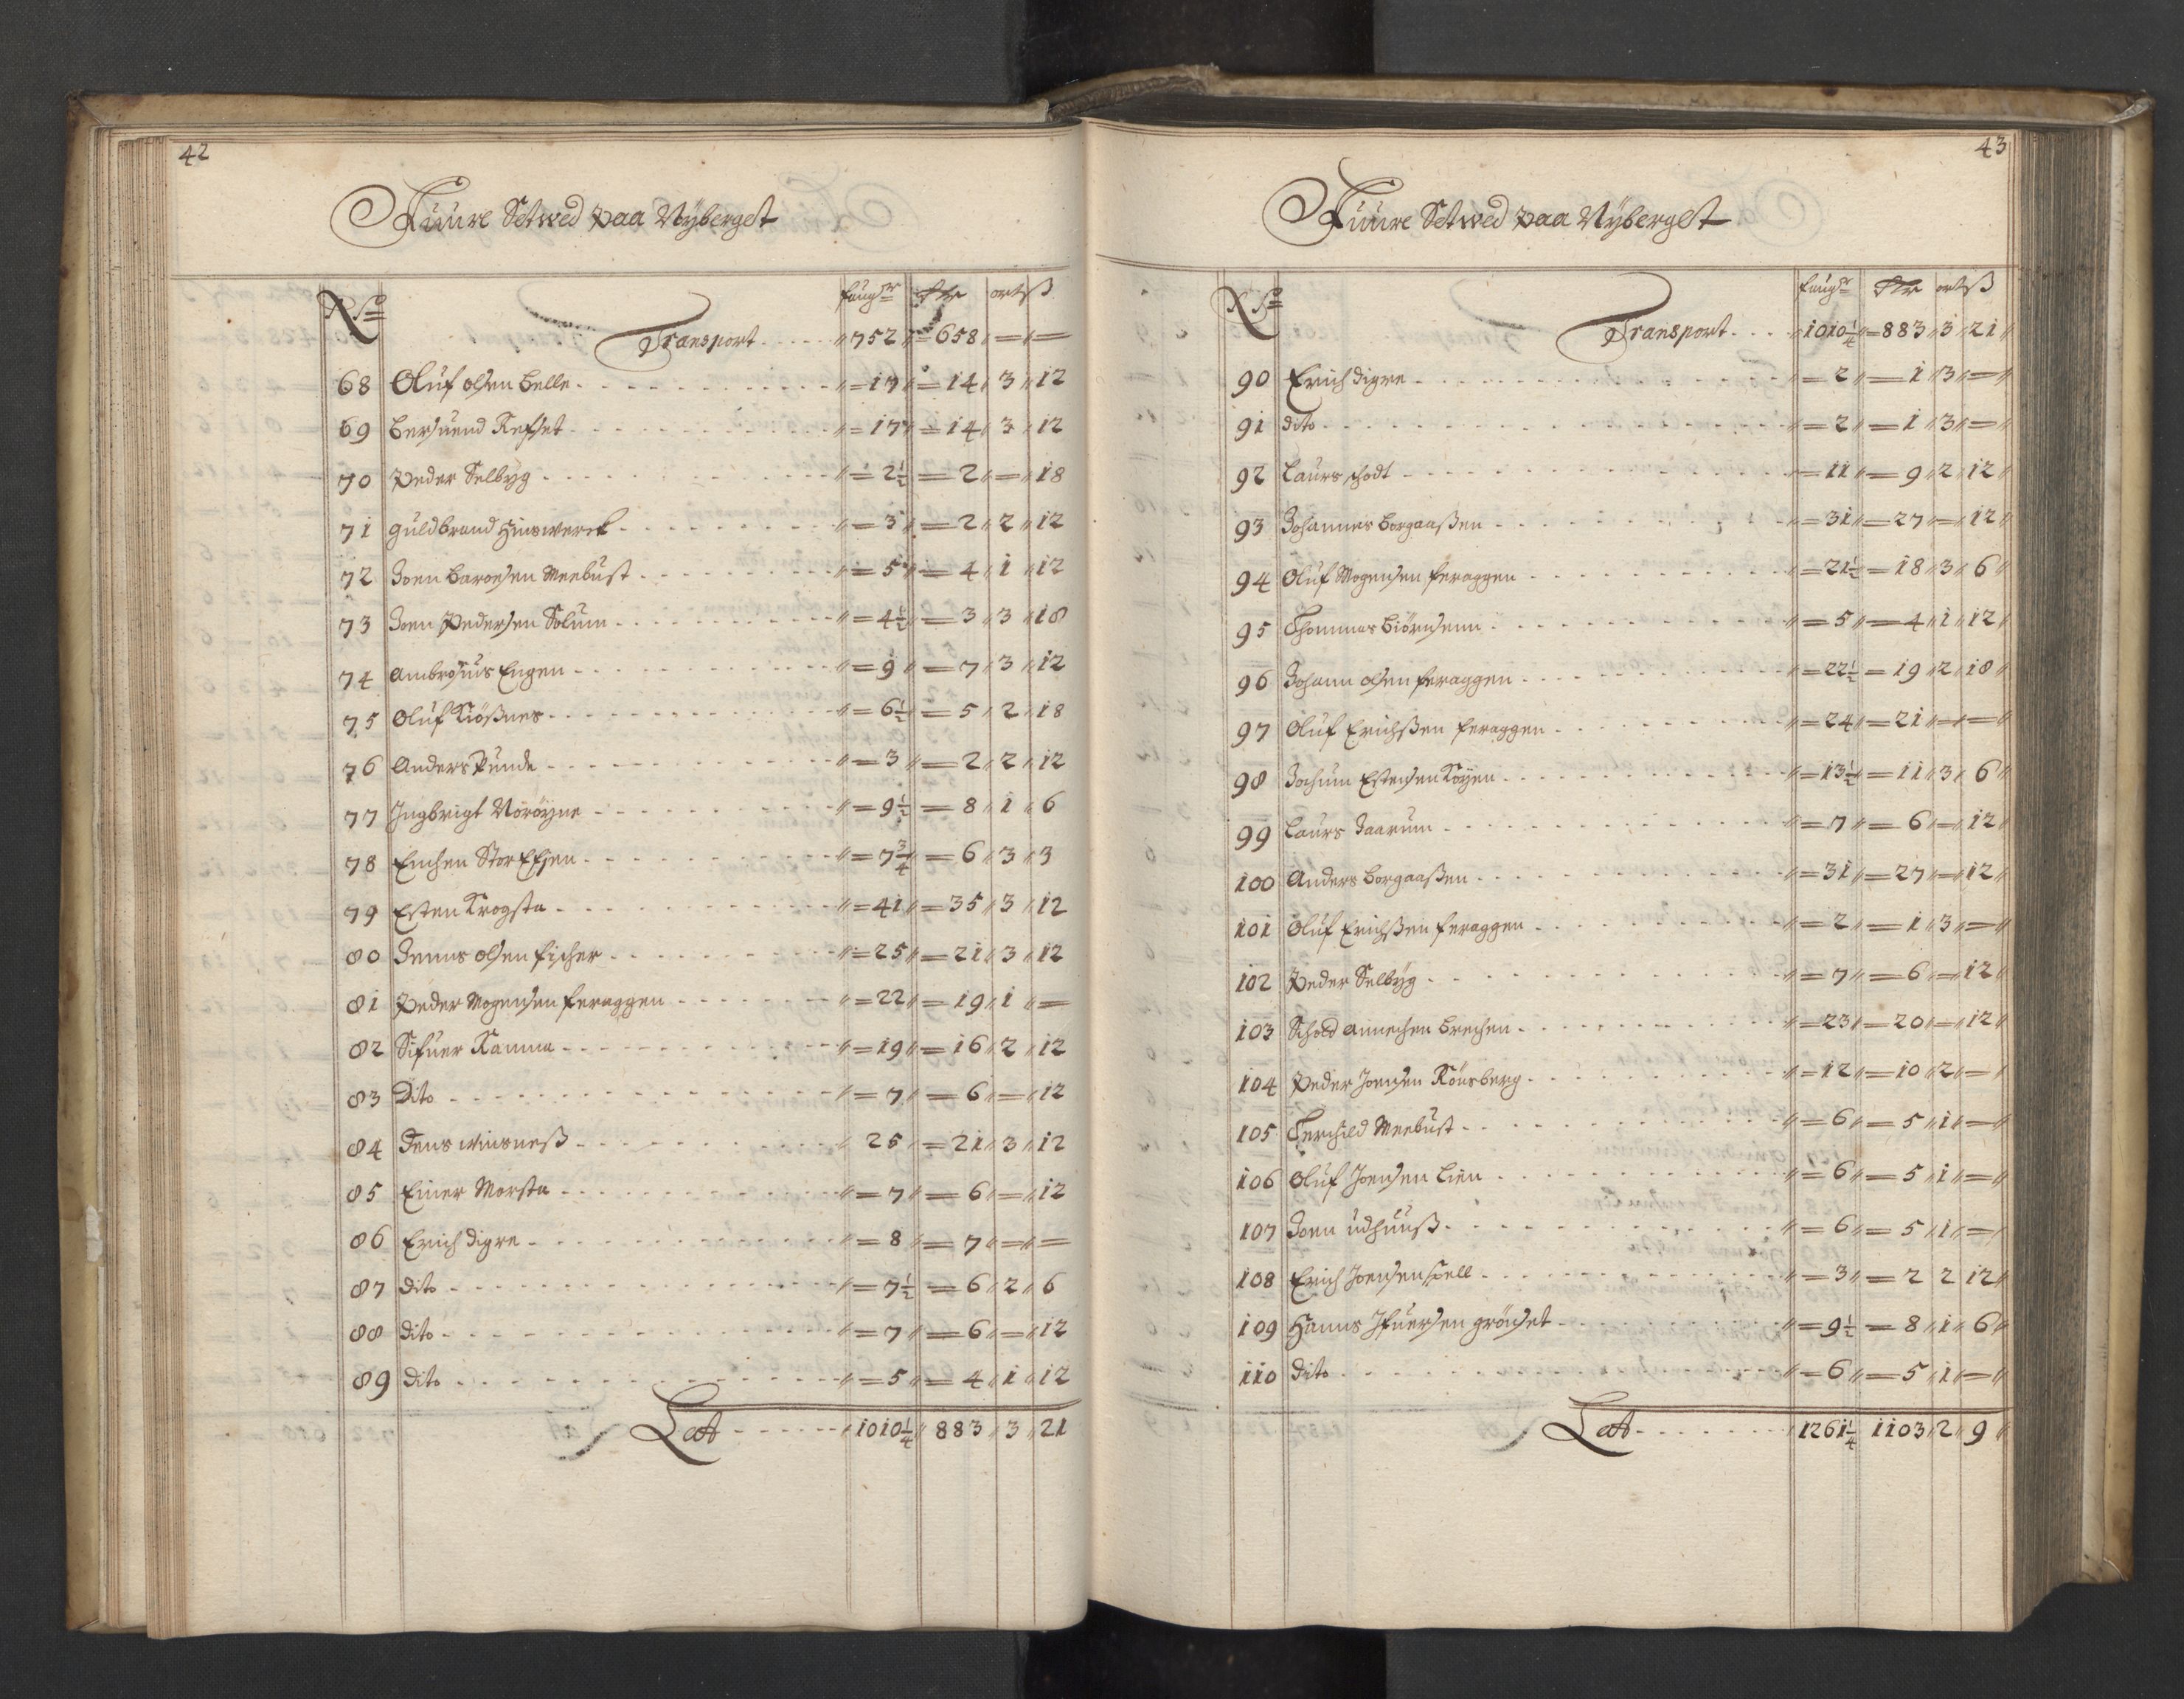 42
Fuure Setwed paa Nÿberget
No faugr Rdr ort ß
Transport 752 658 = =
68 Oluf olsen belle 17 14 3 12
69 bersuend Refset 17 14 3 12
70 Peder Selbyg 2½ 2 = 18
71 guldbrand Hinswerck 3 2 2 12
72 Joen baroesen Meebust 5 4 1 12
73 Joen Pedersen Solum 4½ 3 3 18
74 Ambrosius Engen 9 7 3 12
75 Oluf Kiößnes 6½ 5 2 18
76 Anders Punde 3 2 2 12
77 Ingbrigt Norøyne 9½ 8 1 6
78 Einchen StorEfjen 7¾ 6 3 3
79 Esten Krogsta 41 35 3 12
80 Jenns olsen fischer 25 21 3 12
81 Peder Mogensen feraggen 22 19 1 =
82 Sifuer Kamma 19 16 2 12
83 Dito 7 6 = 12
84 Jens winsneß 25 21 3 12
85 Einer Morsta 7 6 = 12
86 Erich digre 8 7 = =
87 dito 7½ 6 2 6
88 dito 7 6 = 12
89 dito 5 4 1 12
Lat 1010¼ 883 3 21
43
Fuure Setwed paa Nÿberget
No faugr Rdr ort ß
Transport 1010¼ 883 3 21
90 Erich digre 2 1 3 =
91 dito 2 1 3 =
92 Laurs schodt 11 9 2 12
93 Johannes borgaaßen 31 27 = 12
94 Oluf Mogensen feraggen 21½ 18 3 6
95 Thommas biörnsenn 5 4 1 12
96 Johann olsen feraggen 22½ 19 2 18
97 Oluf Erichßen feraggen 24 21 = =
98 Jochum Estensen Koyen 13½ 11 3 6
99 Laurs Jaarum 7 6 = 12
100 Anders borgaaßen 31 27 = 12
101 Oluf Erichßen feraggen 2 1 3 =
102 Peder Selbÿg 7 6 = 12
103 Schold annechen brechen 23 20 = 12
104 Peder Joensen Rönsberg 12 10 2 =
105 Terchild Meebust 6 5 1 =
106 Oluf Joensen Lien 6 5 1 =
107 Joen udhuuß 6 5 1 =
108 Erich Joensen spell 3 2 2 12
109 Hanns Ifuersen grönset 9½ 8 1 6
110 dito 6 5 1 =
Lat 1261¼ 1103 2 9